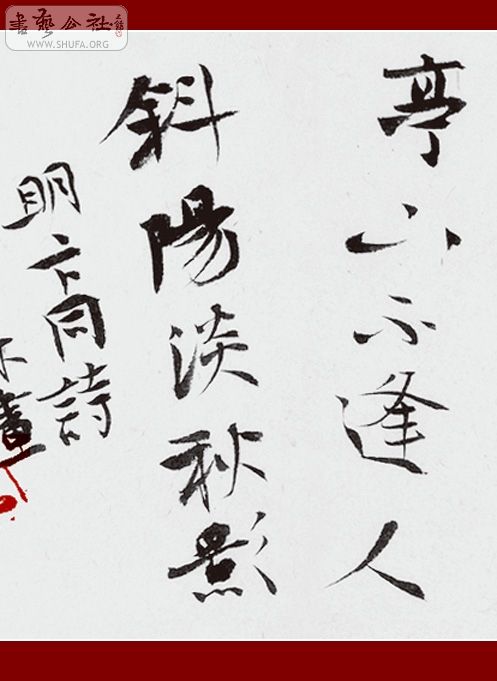 書藝公社
WWW.SHUFA.ORG
亭下不逢人
斜陽淡秋影
明卞同詩
書